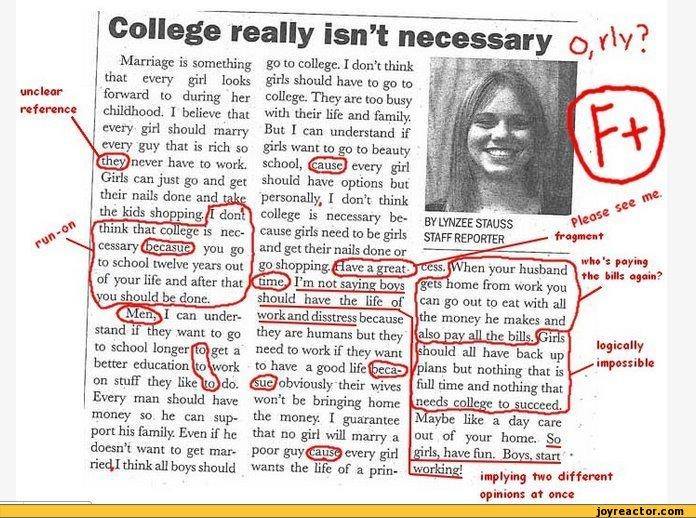 College really isn't necessary
o, rly?
Marriage is something
that every girl looks
forward to during her
childhood. I believe that
every girl should marry
every guy that is rich so
they never have to work.
Girls can just go and get
their nails done and take
the kids shopping. I dont
think that college is nec-
cessary becasue you go
to school twelve years out
of your life and after that
you should be done.
Men, I can under-
stand if they want to go
to school longer to get a
better education to work
on stuff they like to do.
Every man should have
money so he can sup-
port his family. Even if he
doesn't want to get mar-
ried, I think all boys should
go to college. I don't think
girls should have to go to
college. They are too busy
with their life and family.
But I can understand if
girls want to go to beauty
school, cause every girl
should have options but
personally, I don't think
college is necessary be-
cause girls need to be girls
and get their nails done or
go shopping. Have a great
time. I'm not saying boys
should have the life of
work and disstress because
they are humans but they
need to work if they want
to have a good life beca-
sue obviously their wives
won't be bringing home
the money. I guarantee
that no girl will marry a
poor guy cause every girl
wants the life of a prin-
BY LYNZEE STAUSS
STAFF REPORTER
cess. When your husband
gets home from work you
can go out to eat with all
the money he makes and
also pay all the bills. Girls
should all have back up
plans but nothing that is
full time and nothing that
needs college to succeed.
Maybe like a day care
out of your home. So
girls, have fun. Boys, start
working!
unclear
reference
run-on
F+
Please see me.
fragment
who's paying
the bills again?
logically
impossible
implying two different
opinions at once
joyreactor.com